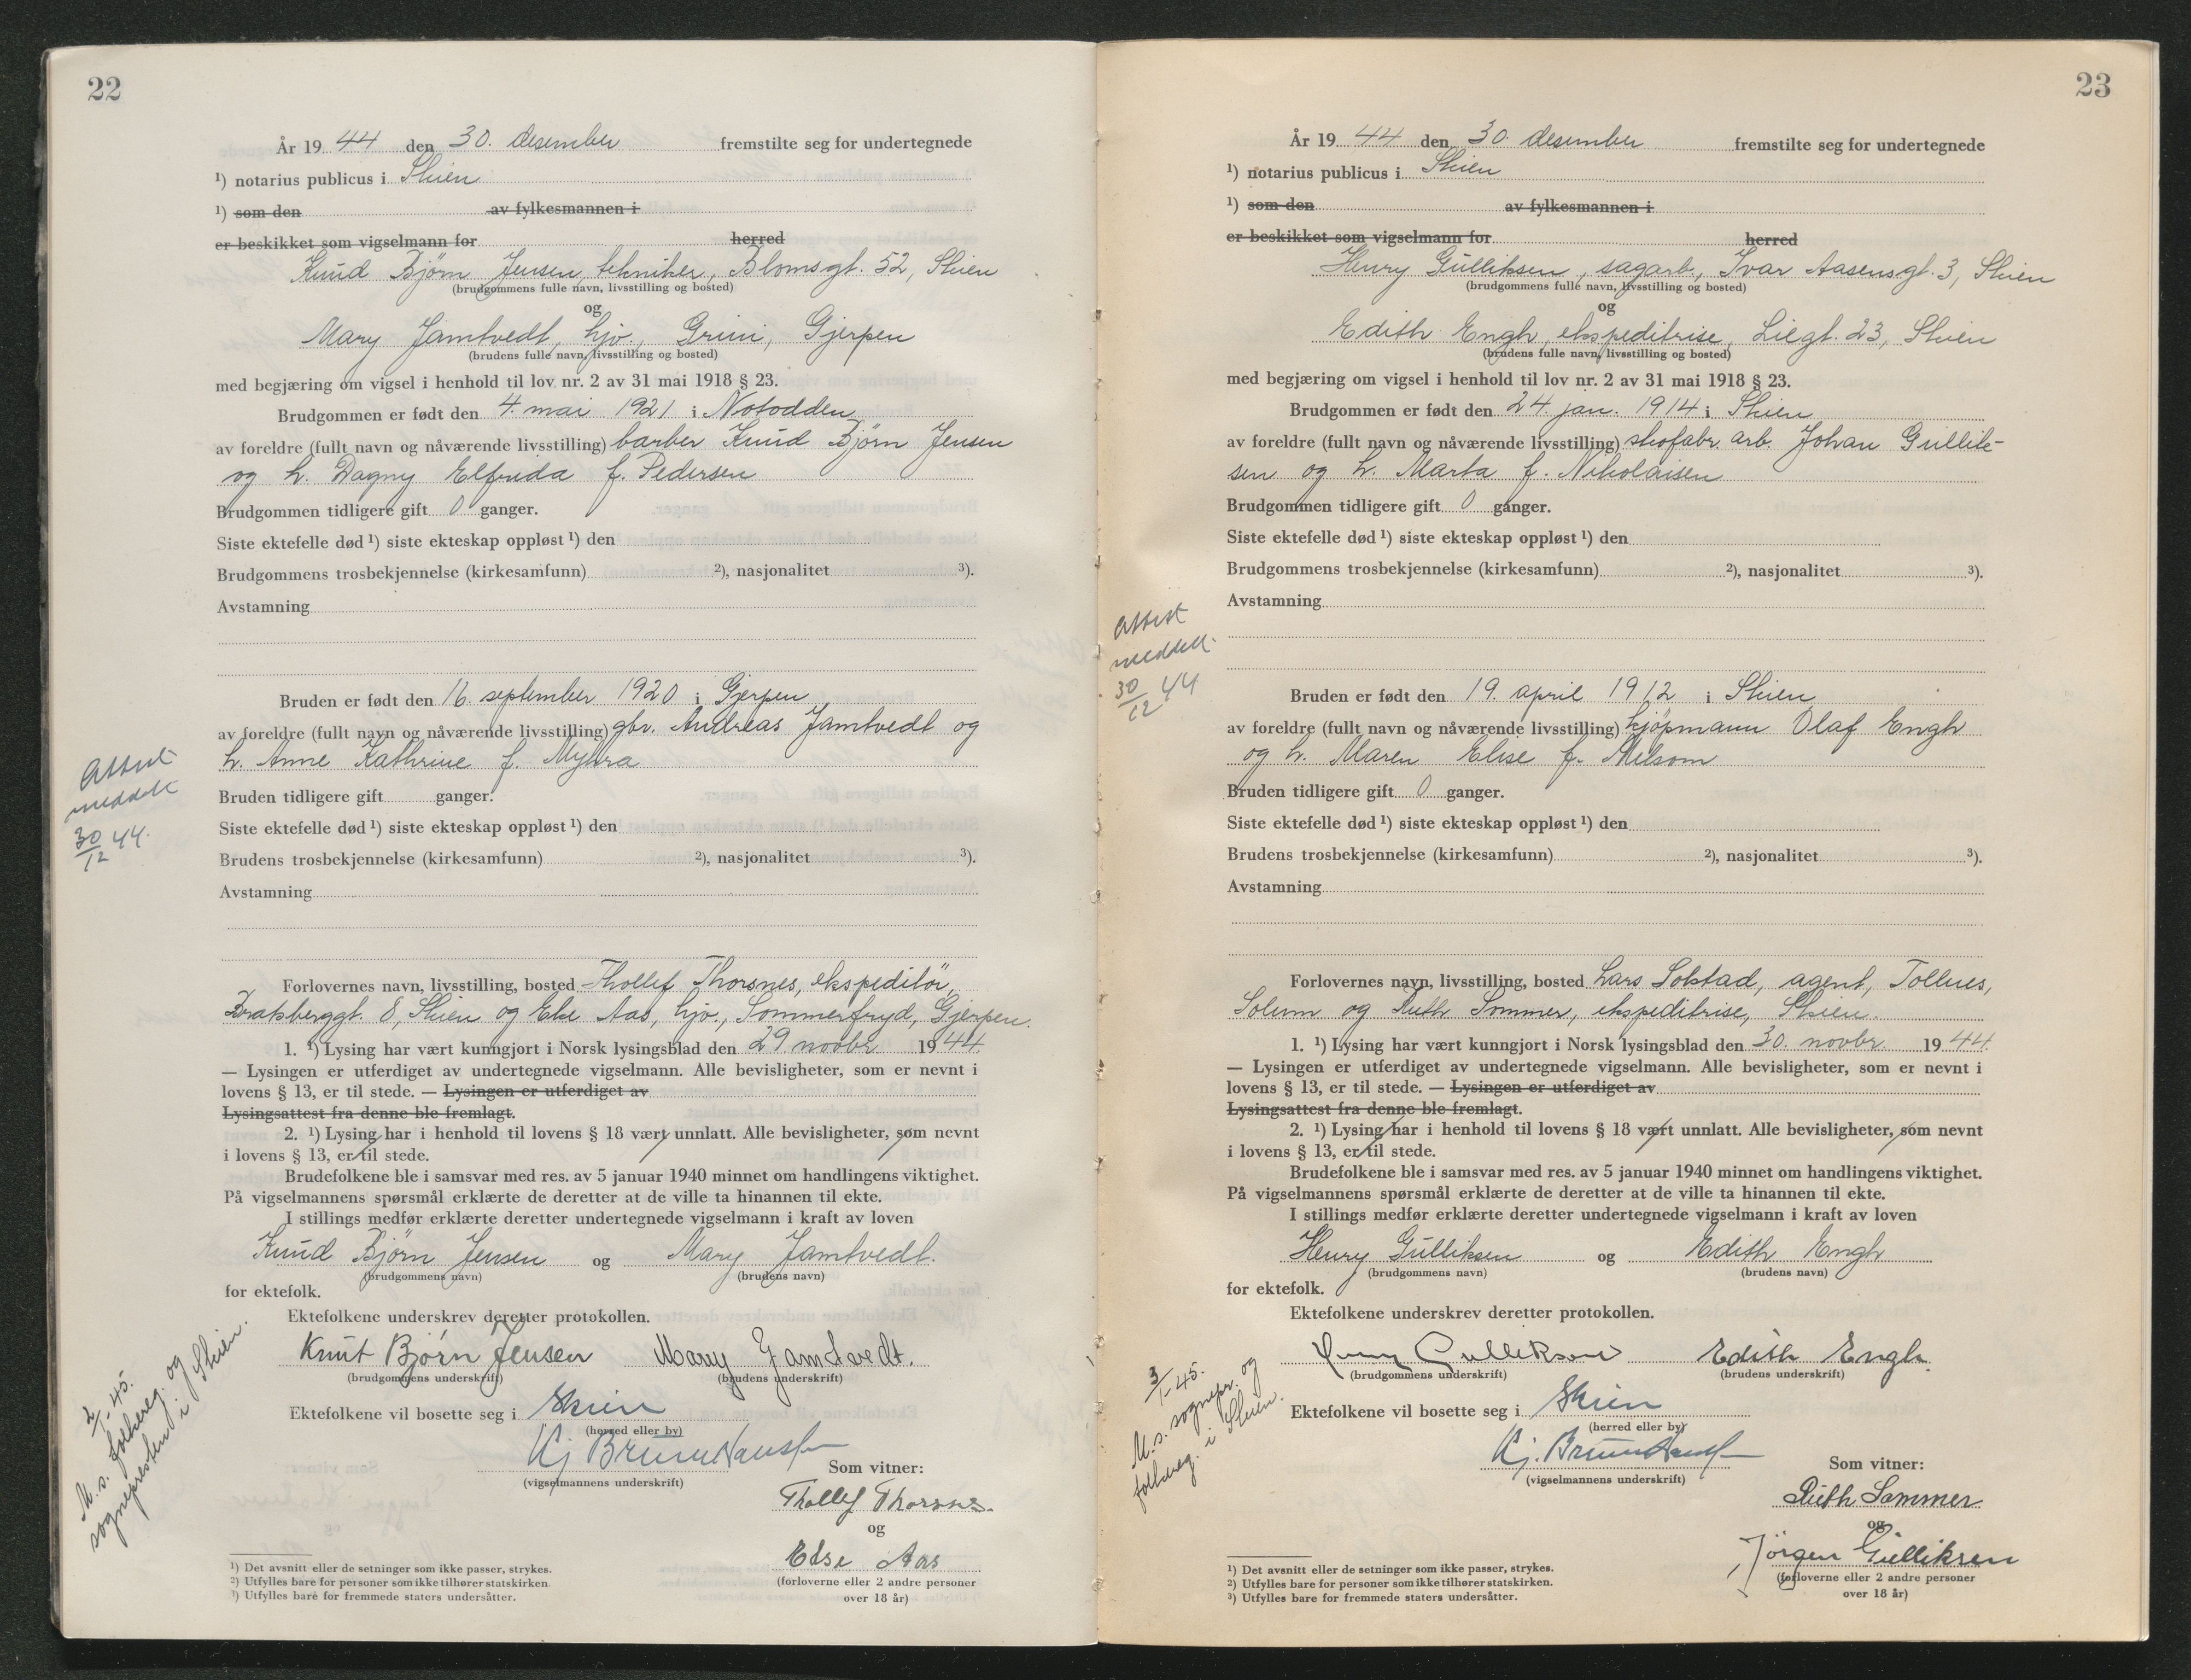 22
År 19 44 den 30. desember fremstilte seg for undertegnede
¹) notarius publicus i Skien
¹) som den av fylkesmannen i
er beskikket som vigselmann for herred
Knud Bjørn Jensen, tekniker, Blomsgt. 52, Skien
(brudgommens fulle navn, livsstilling og bosted)
og
Mary Jamtvedt, hjv., Grini, Gjerpen
(brudens fulle navn, livsstilling og bosted)
med begjæring om vigsel i henhold til lov nr. 2 av 31 mai 1918 § 23.
Brudgommen er født den 4. mai 1921 i Notodden
av foreldre (fullt navn og nåværende livsstilling) barber Knud Bjørn Jensen
og h. Dagny Elfrida f. Pedersen
Brudgommen tidligere gift 0 ganger.
Siste ektefelle død ¹) siste ekteskap oppløst ¹) den
Brudgommens trosbekjennelse (kirkesamfunn) ²), nasjonalitet ³).
Avstamning
Bruden er født den 16. september 1920 i Gjerpen
av foreldre (fullt navn og nåværende livsstilling) gbr. Andreas Jamtvedt og
h. Anne Kathrine f. Myhra
Bruden tidligere gift ganger.
Siste ektefelle død ¹) siste ekteskap oppløst ¹) den
Brudens trosbekjennelse (kirkesamfunn) ²), nasjonalitet ³).
Avstamning
Attest
meddelt
30/12 44.
Forlovernes navn, livsstilling, bosted Thollef Thorsnes, ekspeditör,
Bratsberggt. 8, Skien og Else Aas, hjv., Sommerfryd, Gjerpen.
1. ¹) Lysing har vært kunngjort i Norsk lysingsblad den 29 novbr. 19 44.
— Lysingen er utferdiget av undertegnede vigselmann. Alle bevisligheter, som er nevnt i
lovens § 13, er til stede. — Lysingen er utferdiget av
Lysingsattest fra denne ble fremlagt.
2. ¹) Lysing har i henhold til lovens § 18 vært unnlatt. Alle bevisligheter, som nevnt
i lovens § 13, er til stede.
Brudefolkene ble i samsvar med res. av 5 januar 1940 minnet om handlingens viktighet.
På vigselmannens spørsmål erklærte de deretter at de ville ta hinannen til ekte.
I stillings medfør erklærte deretter undertegnede vigselmann i kraft av loven
Knud Bjørn Jensen og Mary Jamtvedt.
(brudgommens navn) (brudens navn)
for ektefolk.
Ektefolkene underskrev deretter protokollen.
Knut Bjørn Jensen Mary Jamtvedt.
(brudgommens underskrift) (brudens underskrift)
Ektefolkene vil bosette seg i Skien
(herred eller by)
Kj Bruun Hansen
(vigselmannens underskrift)
Som vitner:
Thollef Thorsnes.
og
Else Aas
(forloverne eller 2 andre personer
over 18 år)
2/1-45.
M.s. folkereg. og
sognepresten i Skien.
¹) Det avsnitt eller de setninger som ikke passer, strykes.
²) Utfylles bare for personer som ikke tilhører statskirken.
³) Utfylles bare for fremmede staters undersåtter.
23
År 19 44 den 30. desember fremstilte seg for undertegnede
¹) notarius publicus i Skien
¹) som den av fylkesmannen i
er beskikket som vigselmann for herred
Henry Gulliksen, sagarb., Ivar Aasensgt. 3, Skien
(brudgommens fulle navn, livsstilling og bosted)
og
Edith Engh, ekspeditrise, Liegt. 23, Skien
(brudens fulle navn, livsstilling og bosted)
med begjæring om vigsel i henhold til lov nr. 2 av 31 mai 1918 § 23.
Brudgommen er født den 24. jan. 1914 i Skien
av foreldre (fullt navn og nåværende livsstilling) skofabr. arb. Johan Gullik-
sen og h. Marta f. Nikolaisen
Brudgommen tidligere gift 0 ganger.
Siste ektefelle død ¹) siste ekteskap oppløst ¹) den
Brudgommens trosbekjennelse (kirkesamfunn) ²), nasjonalitet ³).
Avstamning
Attest
meddelt.
30/12 44
Bruden er født den 19. april 1912 i Skien
av foreldre (fullt navn og nåværende livsstilling) kjöpmann Olaf Engh
og h. Maren Elise f. Melsom
Bruden tidligere gift 0 ganger.
Siste ektefelle død ¹) siste ekteskap oppløst ¹) den
Brudens trosbekjennelse (kirkesamfunn) ²), nasjonalitet ³).
Avstamning
Forlovernes navn, livsstilling, bosted Lars Solstad, agent, Tollnes,
Solum og Ruth Sommer, ekspeditrise, Skien.
1. ¹) Lysing har vært kunngjort i Norsk lysingsblad den 30. novbr. 19 44.
— Lysingen er utferdiget av undertegnede vigselmann. Alle bevisligheter, som er nevnt i
lovens § 13, er til stede. — Lysingen er utferdiget av
Lysingsattest fra denne ble fremlagt.
2. ¹) Lysing har i henhold til lovens § 18 vært unnlatt. Alle bevisligheter, som nevnt
i lovens § 13, er til stede.
Brudefolkene ble i samsvar med res. av 5 januar 1940 minnet om handlingens viktighet.
På vigselmannens spørsmål erklærte de deretter at de ville ta hinannen til ekte.
I stillings medfør erklærte deretter undertegnede vigselmann i kraft av loven
Henry Gulliksen og Edith Engh
(brudgommens navn) (brudens navn)
for ektefolk.
Ektefolkene underskrev deretter protokollen.
Henry Gulliksen Edith Engh.
(brudgommens underskrift) (brudens underskrift)
Ektefolkene vil bosette seg i Skien
(herred eller by)
Kj. Bruun Hansen
(vigselmannens underskrift)
Som vitner:
Ruth Sommer
og
Jörgen Gulliksen
(forloverne eller 2 andre personer
over 18 år)
3/1-45.
M.s. sognepr. og
folkereg. i Skien.
¹) Det avsnitt eller de setninger som ikke passer, strykes.
²) Utfylles bare for personer som ikke tilhører statskirken.
³) Utfylles bare for fremmede staters undersåtter.